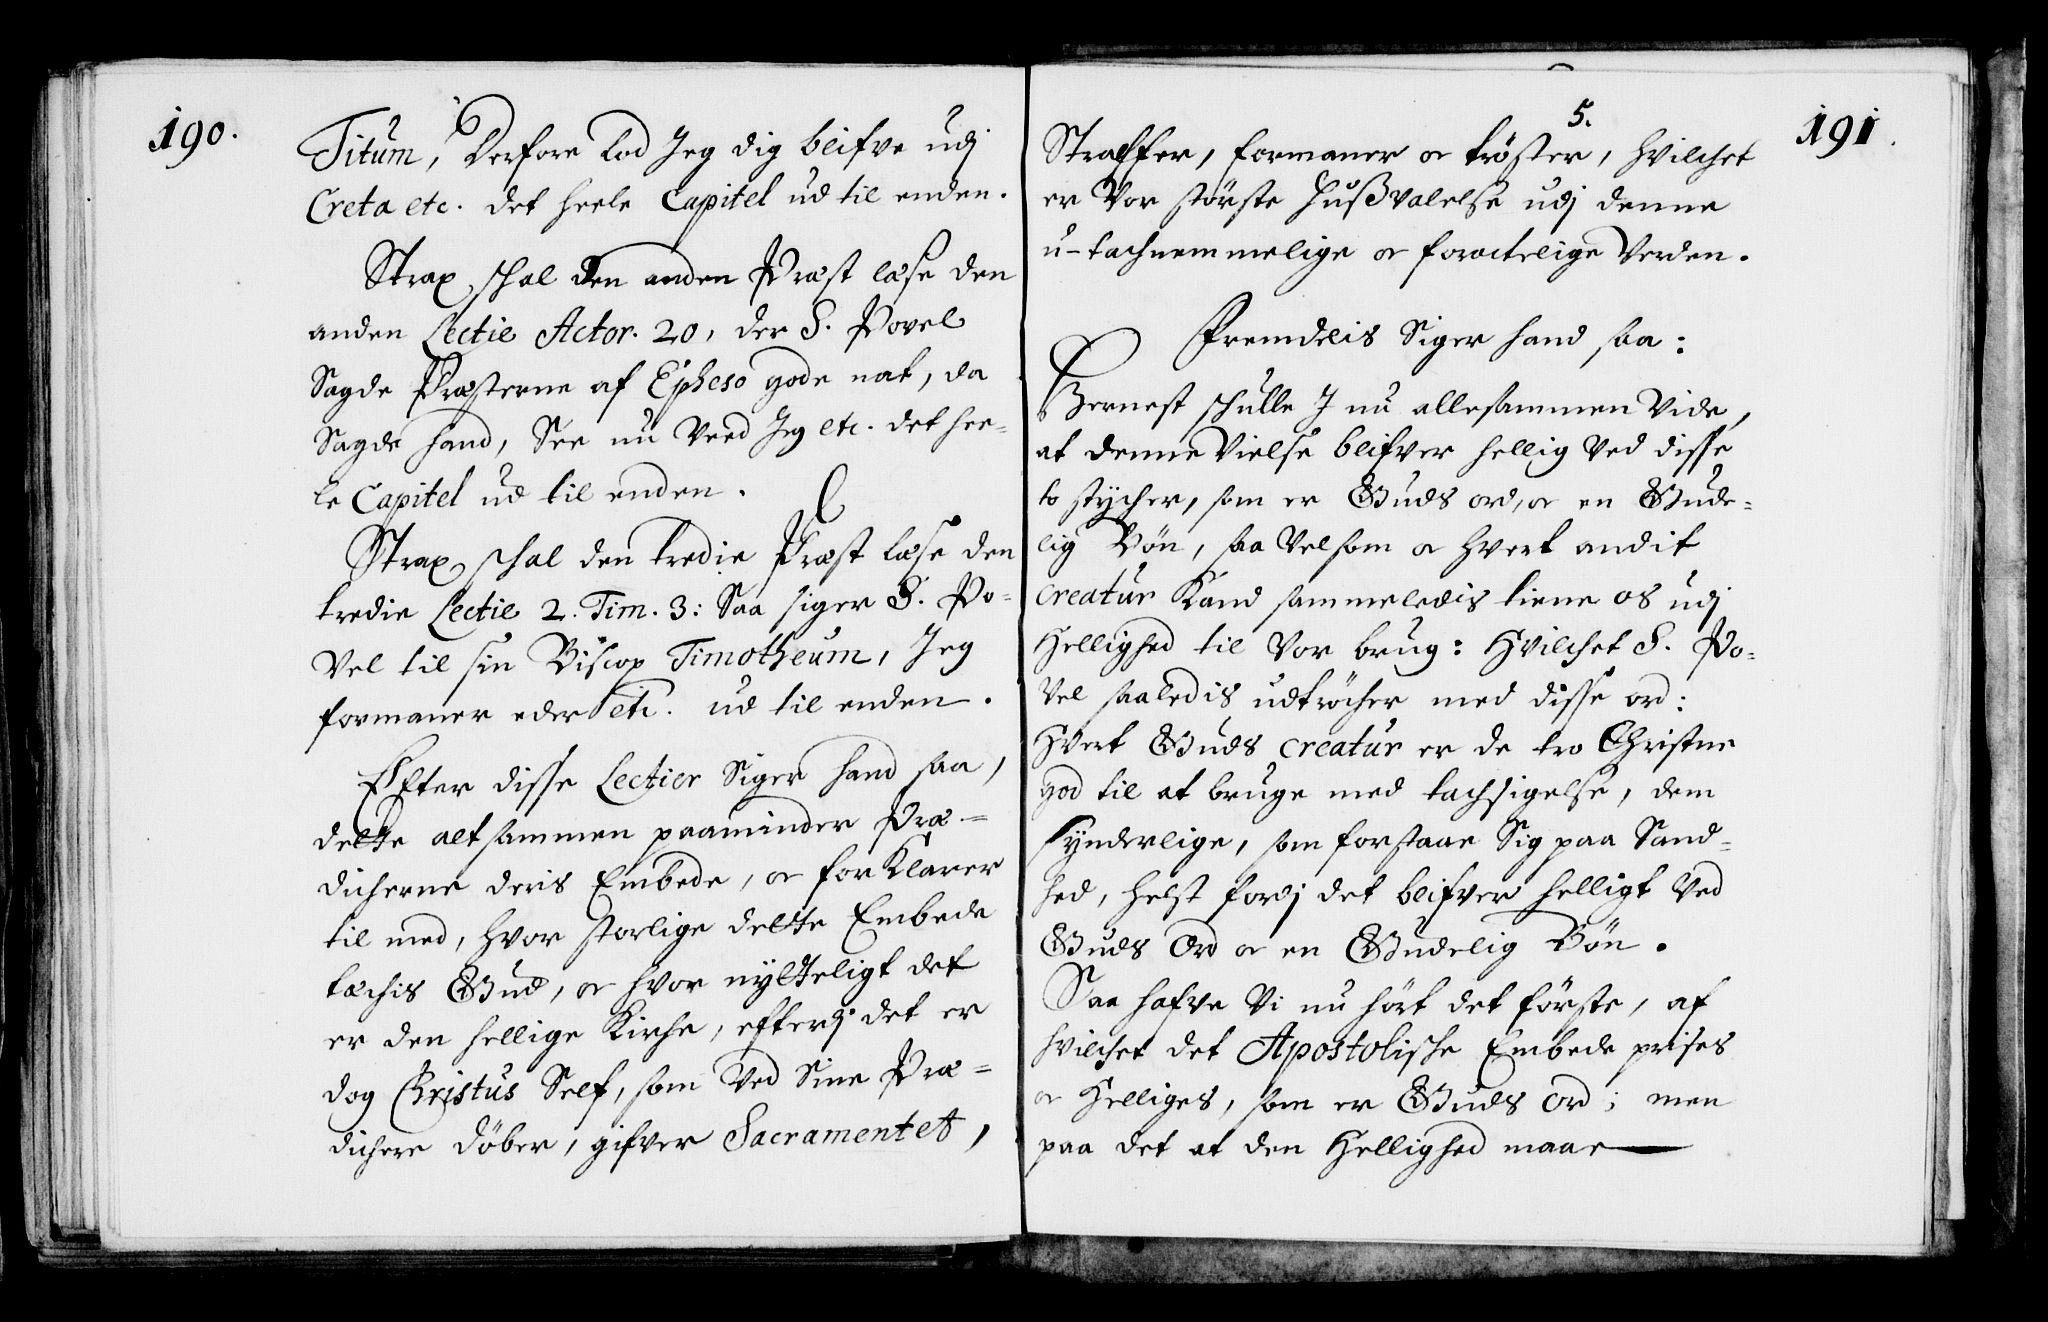 190.
Titum, Derfore lod Jeg dig blifve udj
Creta etc. det heele Capitel ud til enden.
Strax schal den anden Præst læse den
anden Lectie Actor. 20, der S. Povel
Sagde Præsterne af Epheso gode nat, da
Sagde hand, See nu Veed Jeg etc. det hee-
le Capitel ud til enden.
Strax schal den tredie Præst læse den
tredie Lectie 2. Tim. 3: Saa siger S. Po-
vel til sin Biscop Timotheum, Jeg
formaner eder etc. ud til enden.
Efter disse Lectier Siger hand saa,
dette altsammen paaminder Præ-
dicherne deris Embede, oc forKlarer
til med, hvor storlige dette Embede
tæchis Gud, oc hvor nytteligt det
er den hellige Kirche, efterdj det er
dog Christus Self, som Ved Sine Præ-
dichere döber, gifver Sacramentet,
5.
191.
Straffer, formaner oc tröster, hvilchet
er Vor störste Hußvalelse udj denne
u-tachnemmelige oc foractelige Verden.
Fremdelis Siger hand saa:
Gernest schulle J nu allesammen Vide,
at denne Vielse blifver hellig Ved disse
to stÿcher, som er Guds ord, oc en Gude-
lig Bön, saa Velsom oc hvert andit
Creatur Kand sammeledis tiene os udj
Hellighed til Vor brug: Hvilchet S. Po-
vel saaledis udtrÿcher med disse ord:
Hvert Guds Creatur er de tro Christne
god til at bruge med tachsigelse, dem
synderlige, som forstaae Sig paa Sand-
hed, helst fordj det blifver helligt Ved
Guds Ord oc en Gudelig Bön.
Saa hafve Vi nu hört det förste, af
hvilchet det Apostolische Embede prises
oc Helliges, som er Guds Ord; men
paa det at den Hellighed maae